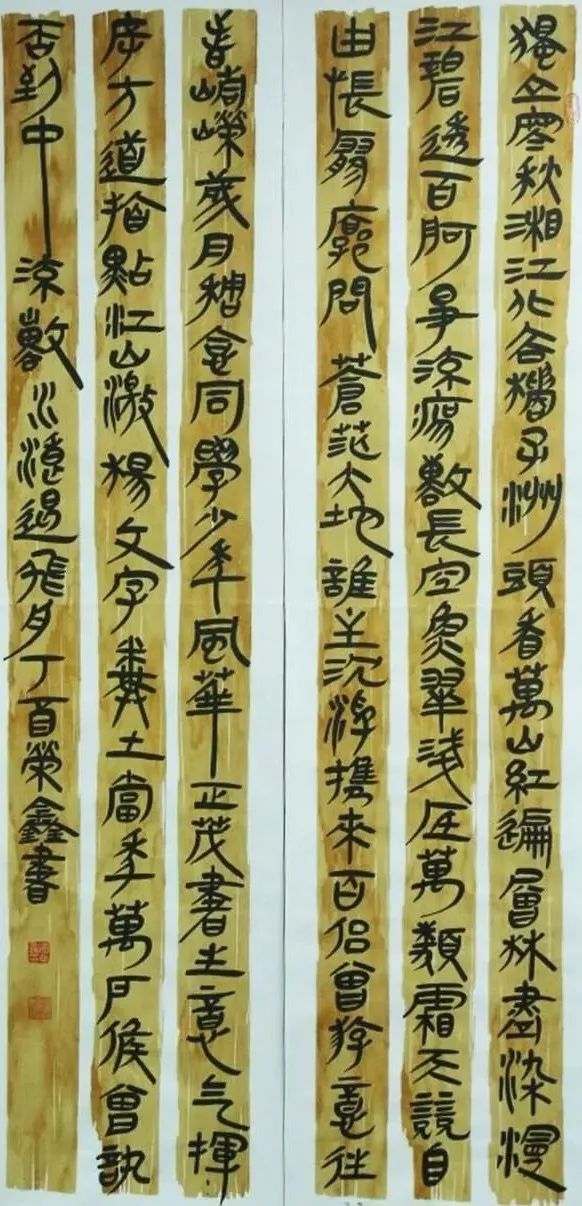 獨立寒秋湘江北去橘子洲頭看萬山紅遍層林盡染漫
江碧透百舸爭流鷹擊長空魚翔淺底萬類霜天競自
由悵寥廓問蒼茫大地誰主沉浮攜來百侶曾游憶往
昔崢嶸歲月稠恰同學少年風華正茂書生意气揮
斥方遒指點江山激揚文字糞土當年萬戶侯曾記
否到中流擊水浪遏飛舟丁酉榮鑫書